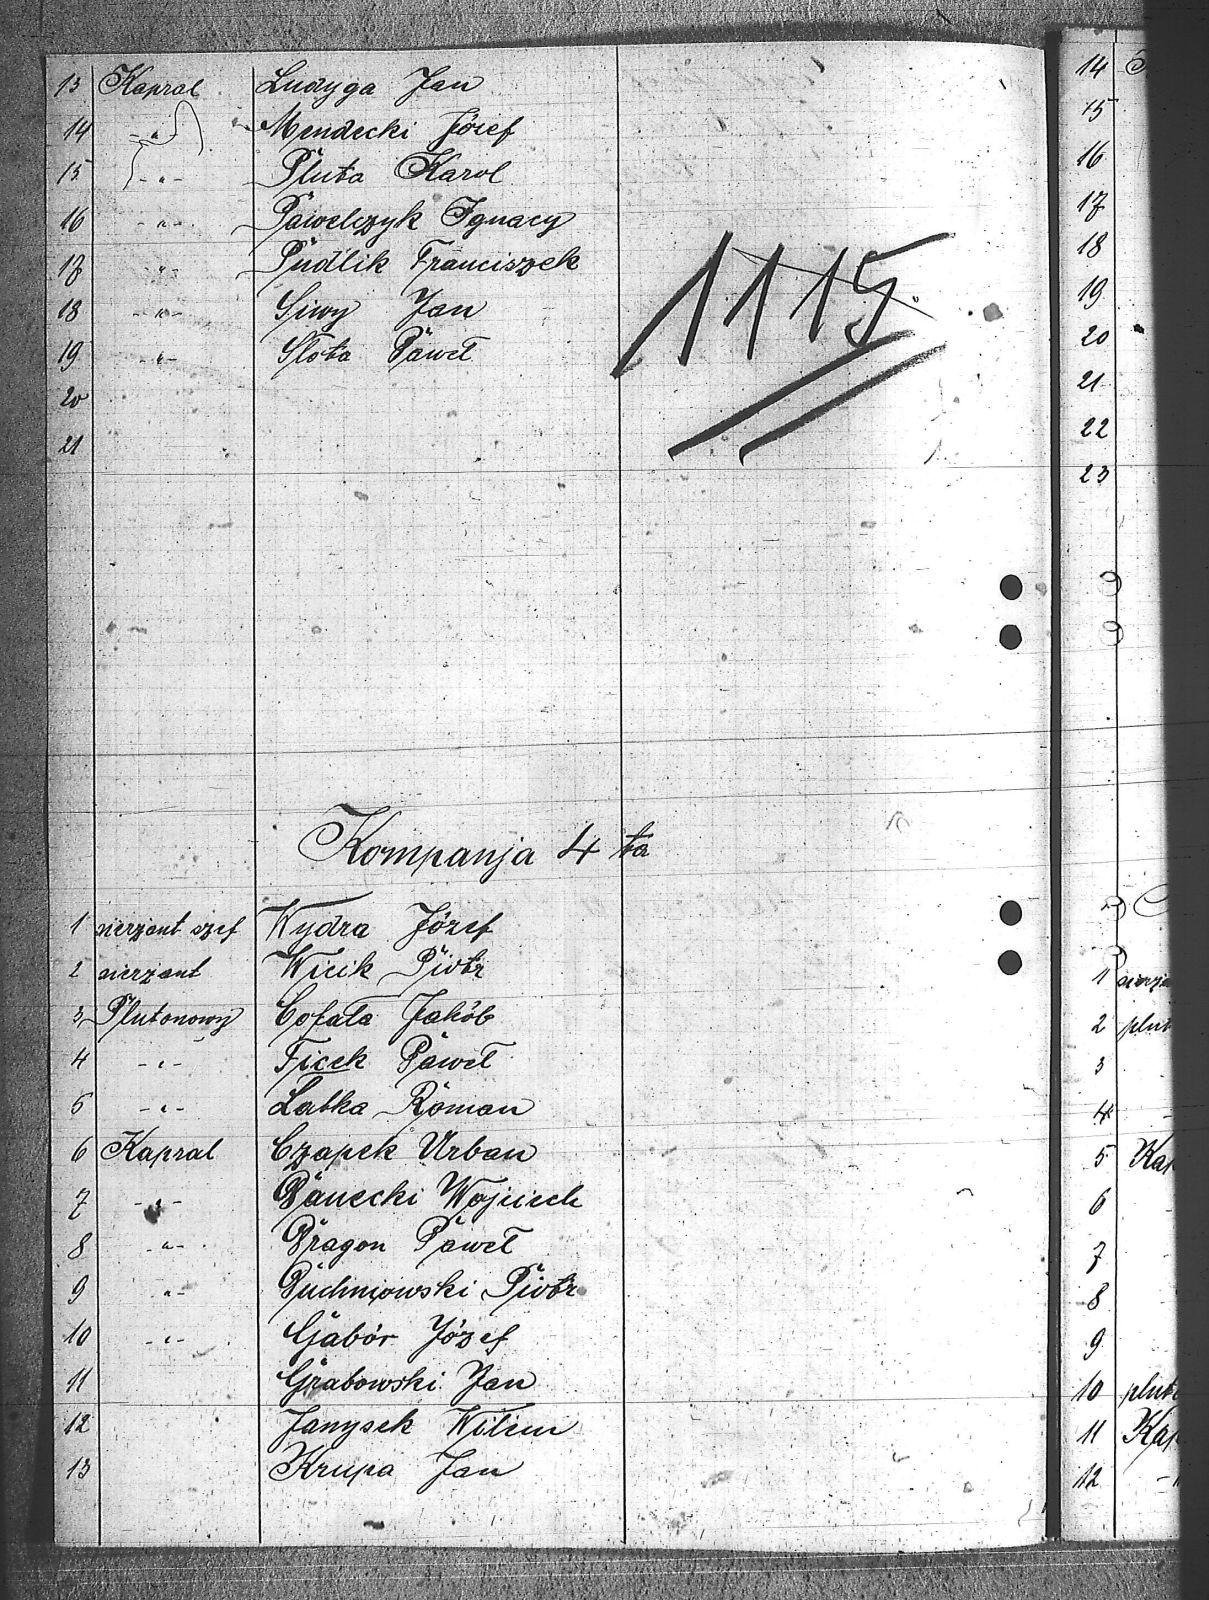 13 Kapral Ludyga Jan
14 -"- Mendecki Józef
15 -"- Pluta Karol
16 -"- Pawelczyk Ignacy
17 -"- Pudlik Franciszek
18 -"- Siwy Jan
19 -"- Słota Paweł
20
21
1115
Kompanja 4 ta
1 sierżant szef Wydra Józef
2 sierżant Wicik Piotr
3 Plutonowy Cofała Jakób
4 -"- Ficek Paweł
5 -"- Labka Roman
6 Kapral Czapek Urban
7 -"- Danecki Wojciech
8 -"- Dragon Paweł
9 -"- Duchniowski Piotr
10 -"- Gabór Józef
11 Grabowski Jan
12 Janysek Wilem
13 Krupa Jan
14
15
16
17
18
19
20
21
22
23
1
2 plut
3
4
5 Kap
6
7
8
9
10 pluto
11 Kap
12